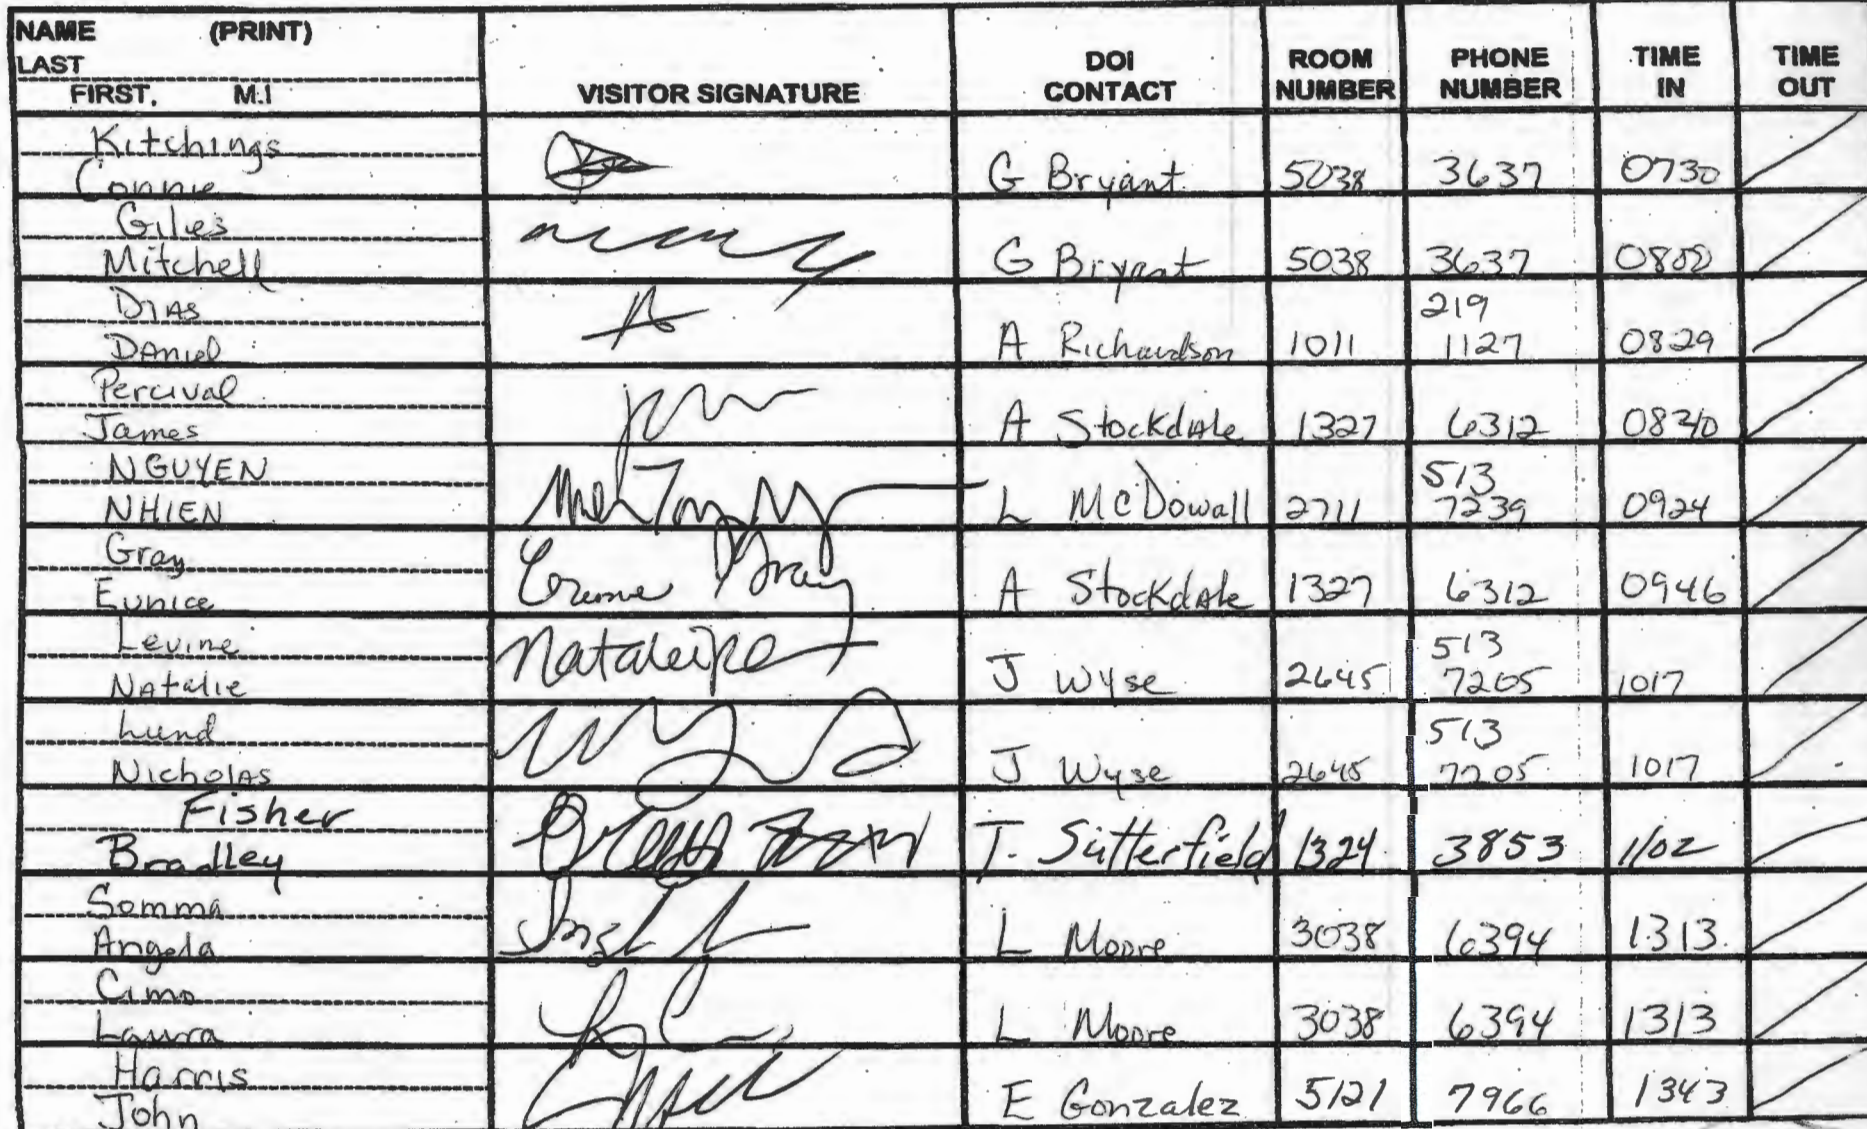 NAME (PRINT)
LAST
FIRST. M.I
VISITOR SIGNATURE
DOI
CONTACT
ROOM
NUMBER
PHONE
NUMBER
TIME
IN
TIME
OUT
Kitchings
Connie G Bryant 5038 3637 0730
Giles
Mitchell G Bryant 5038 3637 0800
Dias 219
Daniel A Richardson 1011 1127 0829
Percival
James A Stockdale 1327 6312
NGUYEN 513
NHIEN L McDowall 2711 7239 0924
Gray
Eunice A Stockdale 1327 6312 0946
Levine 513
Natalie J Wyse 2645 7205 1017
Lund 513
Nicholas J Wyse 2645 7205 1017
Fisher
Bradley T. Sutterfield 1324 3853 1102
Somma
Angela L Moore 3038 6394 1313
Cimo
Laura L Moore 3038 6394 1313
Harris
John E Gonzalez 5121 7966 1343